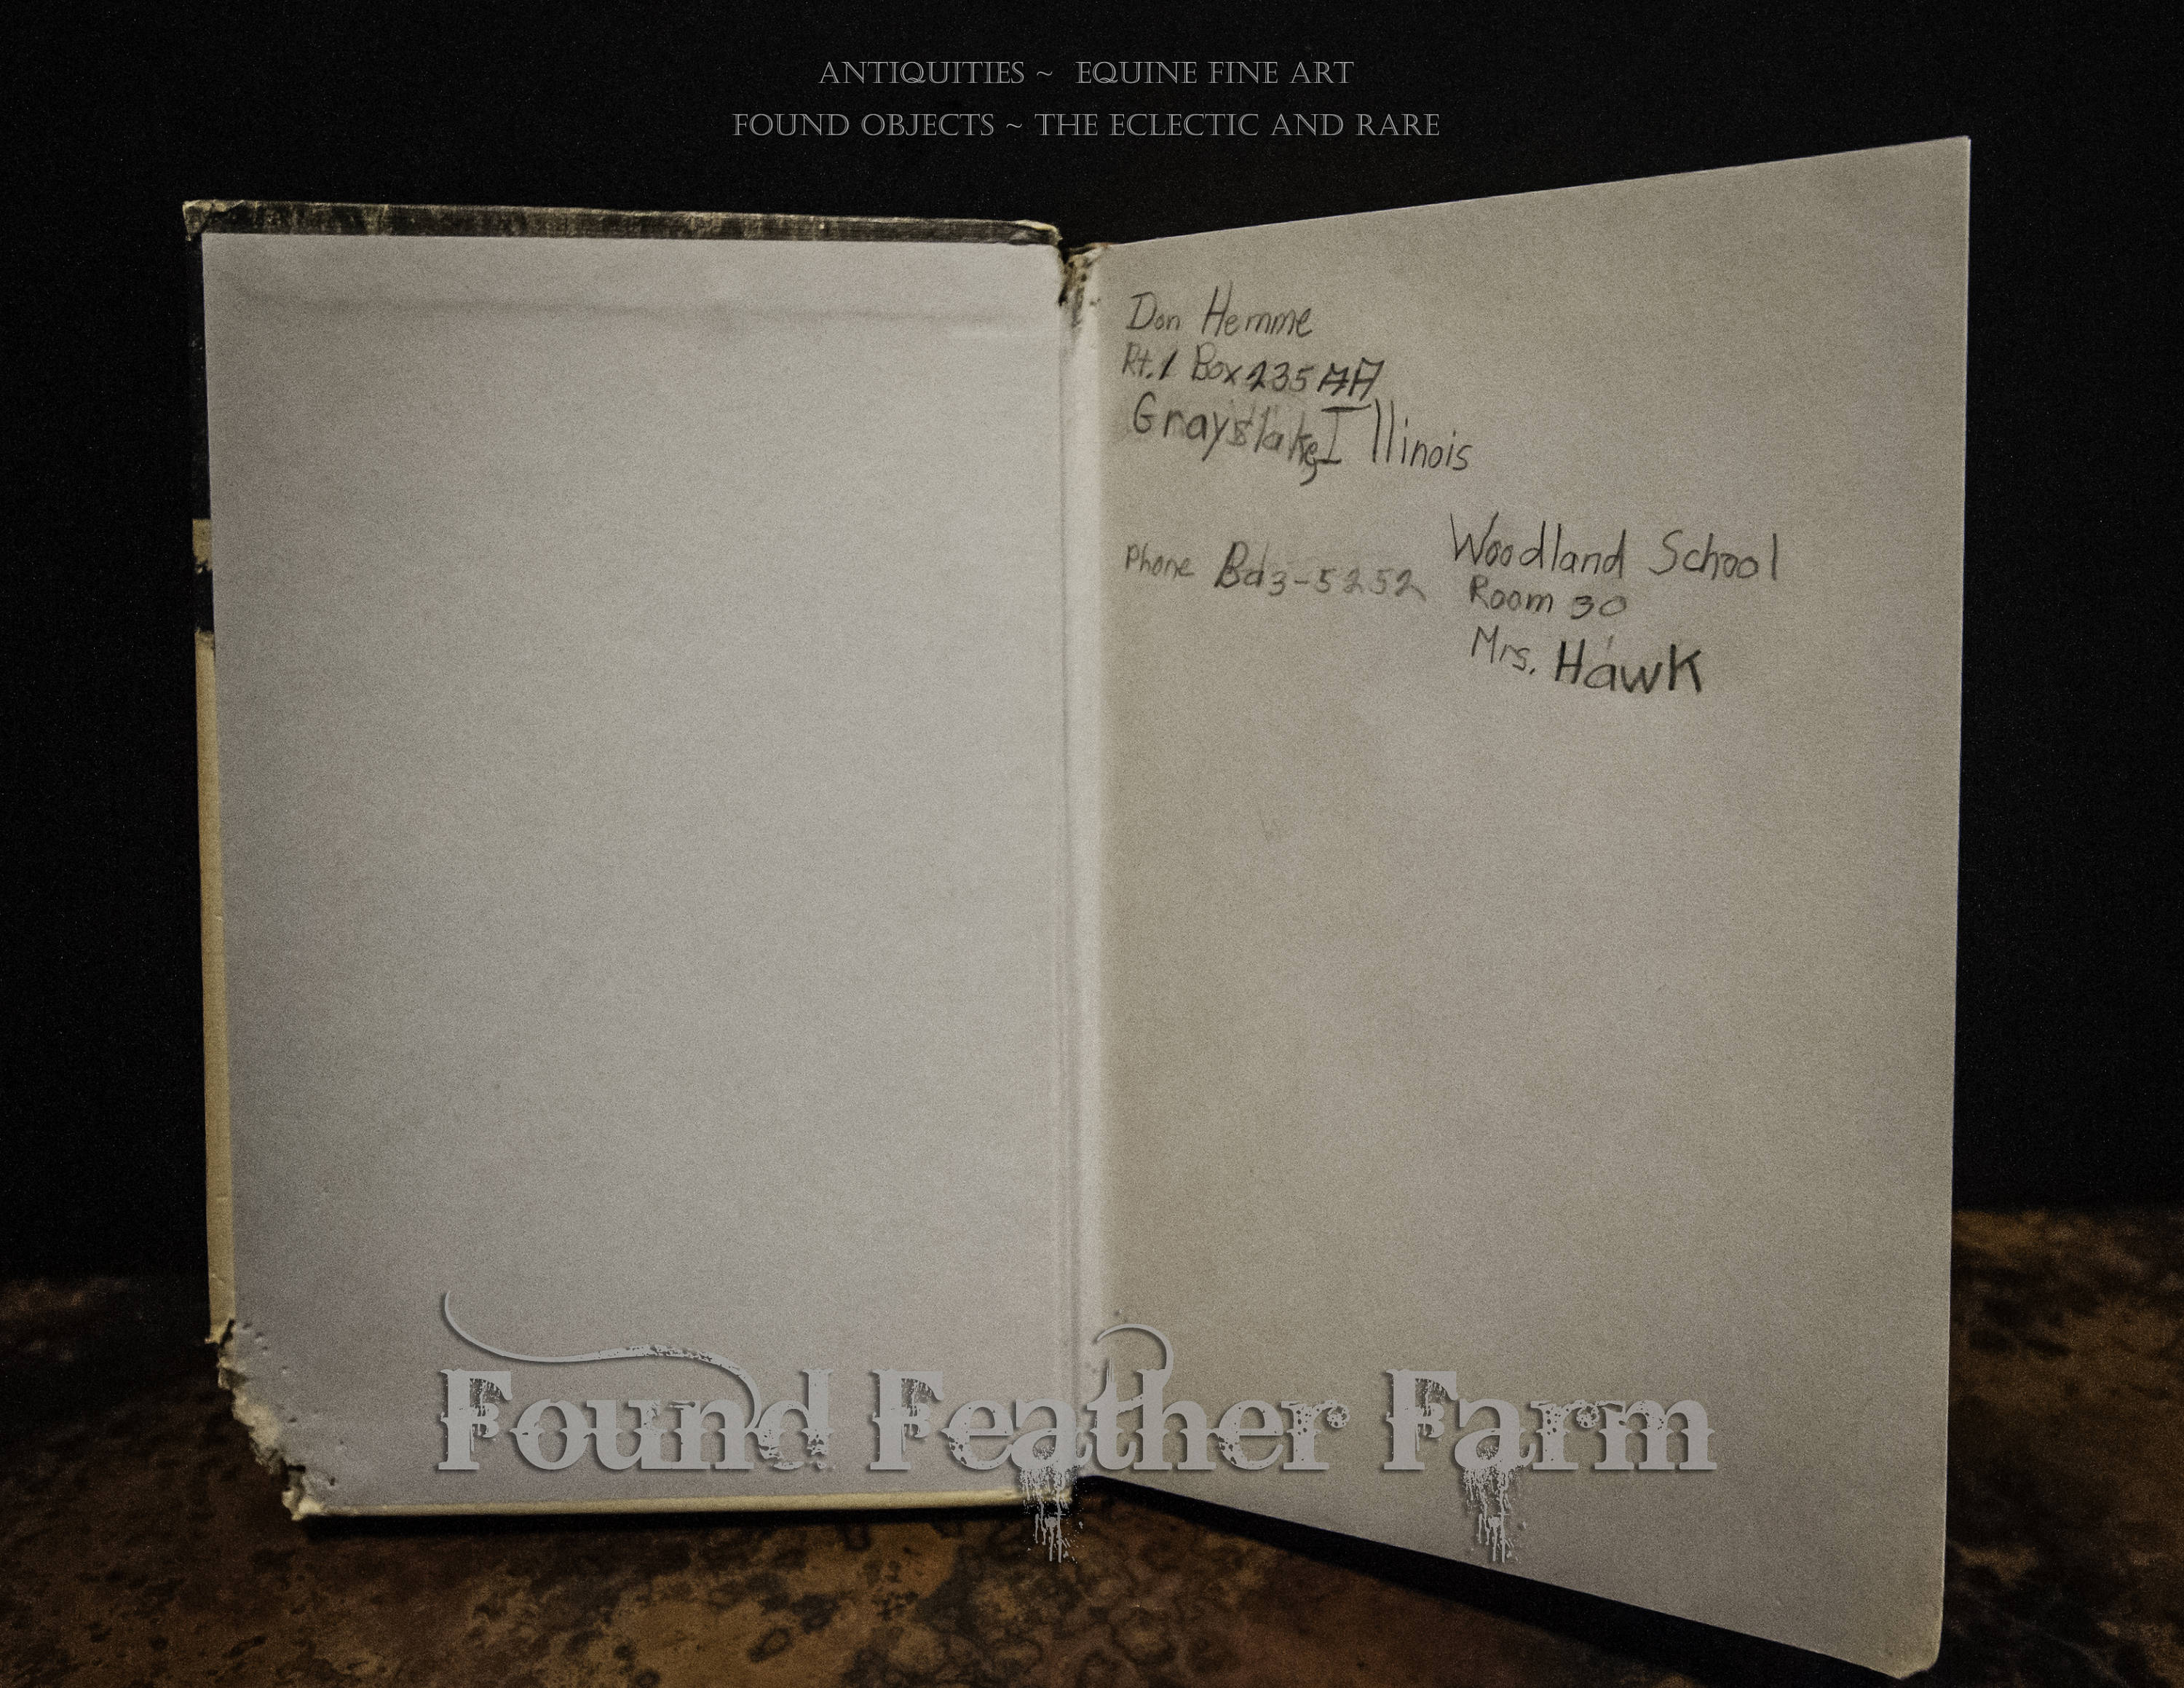 ANTIQUITIES ~ EQUINE FINE ART
FOUND OBJECTS ~ THE ECLECTIC AND RARE
Don Hemme
Rt. 1 Box 235 AA
Grayslake, Illinois
Phone Ba3-5252
Woodland School
Room 30
Mrs. Hawk
Found Feather Farm